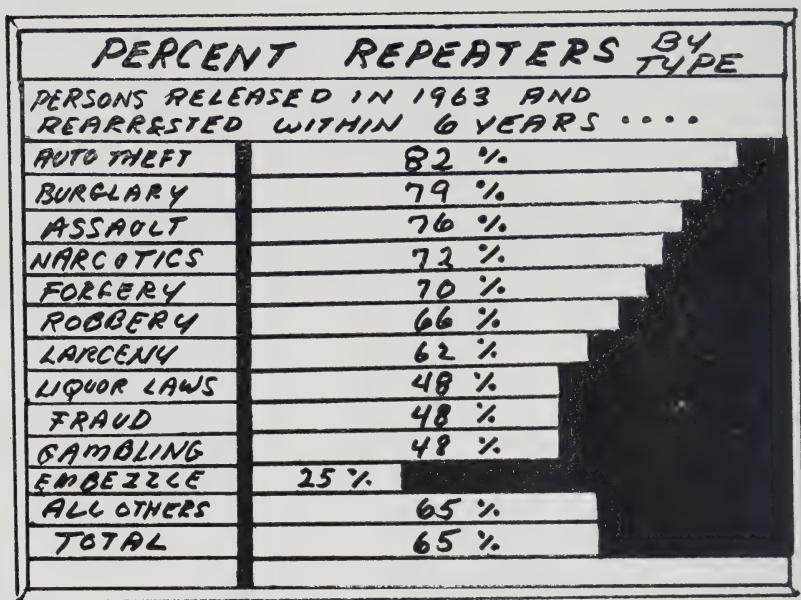 PERCENT REPEATERS BY TYPE
PERSONS RELEASED IN 1963 AND
REARRESTED WITHIN 6 YEARS ....
AUTO THEFT 82 %
BURGLARY 79 %
ASSAULT 76 %
NARCOTICS 72 %
FORGERY 70 %
ROBBERY 66 %
LARCENY 62 %
LIQUOR LAWS 48 %
FRAUD 48 %
GAMBLING 48 %
EMBEZZLE 25 %
ALL OTHERS 65 %
TOTAL 65 %